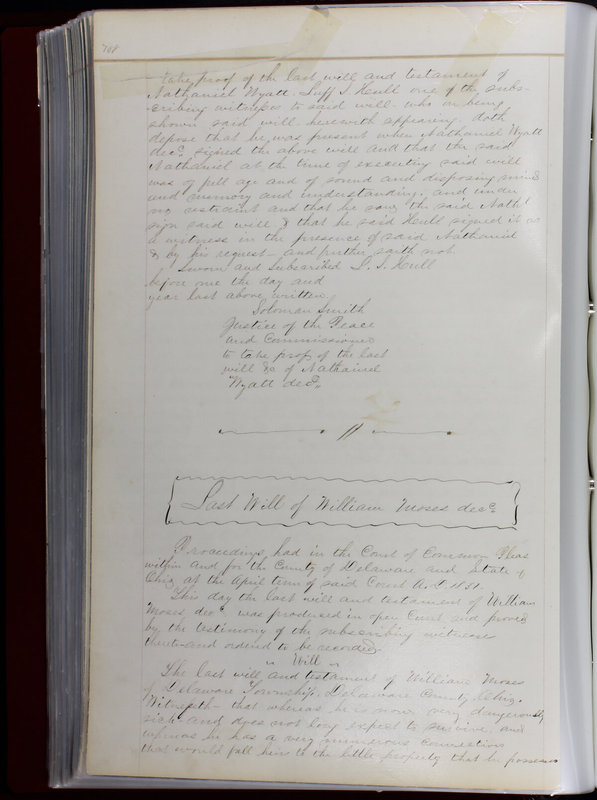 708
take proof of the last will and testament of
Nathaniel Wyatt. Luff S. Hull one of the subs-
cribing witnesses to said will who on being
shown said will herewith appearing doth
depose that he was present when Nathaniel Wyatt
decd. signed the above will and that the said
Nathaniel at the time of executing said will
was of full age and of sound and disposing mind
and memory and understanding. and under
no restraint and that he saw the said Nathl
sign said will & that he said Hull signed it as
a witness in the presence of said Nathaniel
& by his request - and further saith not
Sworn and Subscribed L. S. Hull
before me the day and
year last above written
Soloman Smith
Justice of the Peace
and Commissioner
to take proof of the last
will &c of Nathaniel
Wyatt decd.
Last Will of William Moses decd.
Proceedings had in the Court of Common Pleas
within and for the County of Delaware and State of
Ohio, at the April term of said Court A.D.
This day the last will and testament of William
Moses decd. was produced in open Court and proved
by the testimony of the subscribing witnesses
thereto and ordered to be recorded
" Will "
The last will and testament of William Moses
of Delaware Township. Delaware County Ohio.
Witnesseth - that whereas he is now very dangerously
sick and does not long expect to survive, and
whereas he has a very numerous connection
that would fall heir to the little property that he possesses